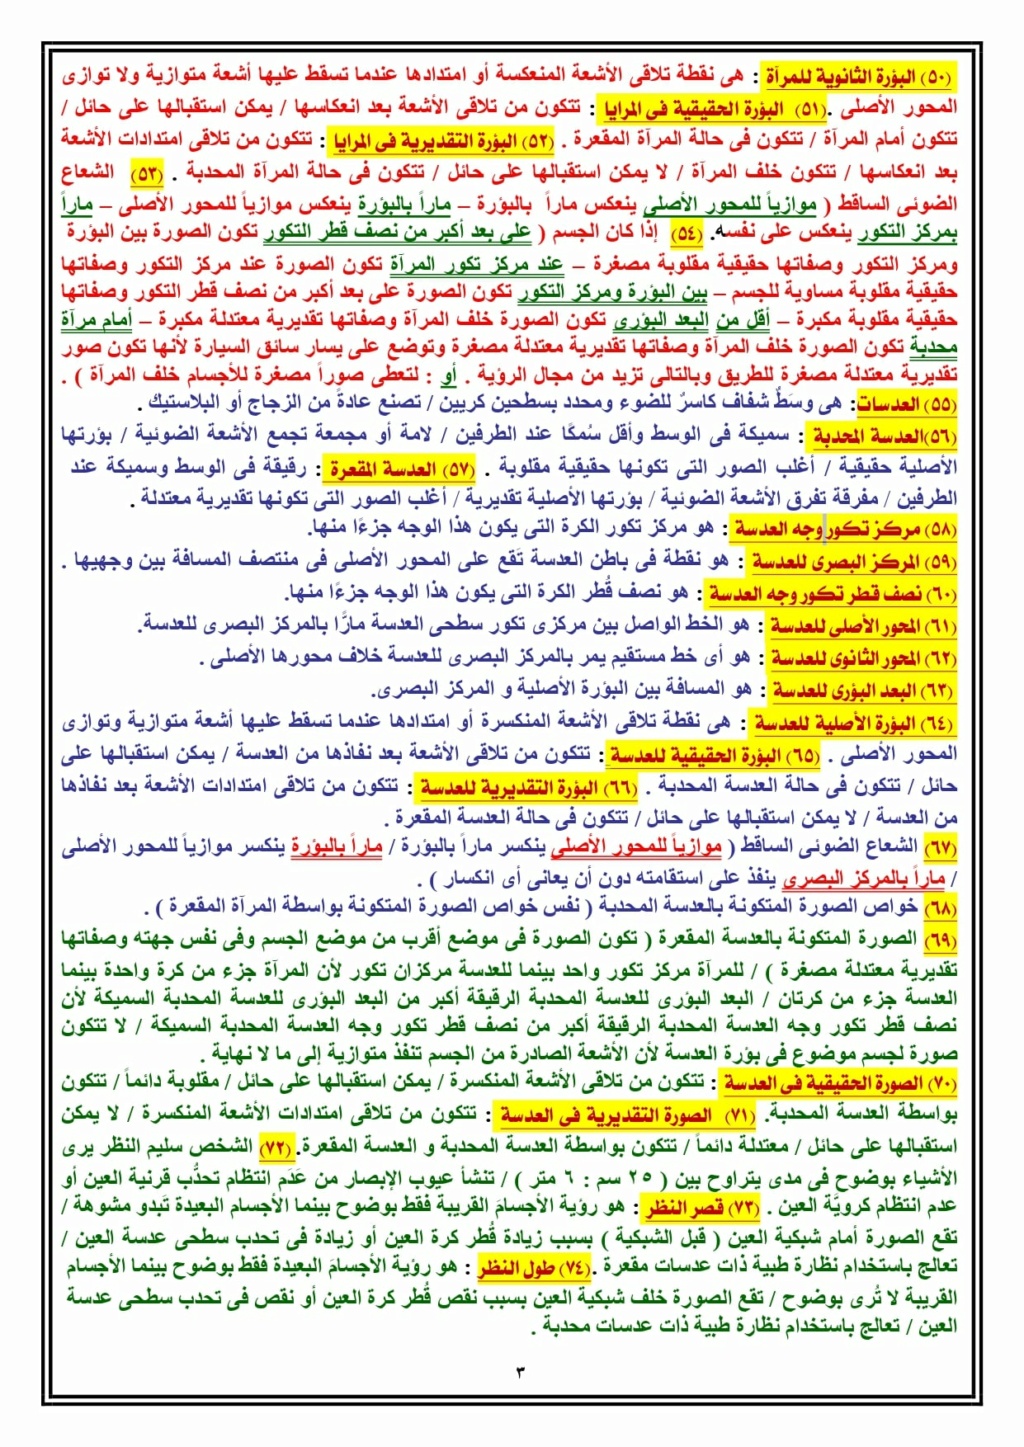 (٥٠) البؤرة الثانوية للمرآة : هى نقطة تلاقى الأشعة المنعكسة أو امتدادها عندما تسقط عليها أشعة متوازية ولا توازى
المحور الأصلى .(٥١) البؤرة الحقيقية فى المرايا : تتكون من تلاقى الأشعة بعد انعكاسها / يمكن استقبالها على حائل /
تتكون أمام المرآة / تتكون فى حالة المرآة المقعرة . (٥٢) البؤرة التقديرية فى المرايا : تتكون من تلاقى امتدادات الأشعة
بعد انعكاسها / تتكون خلف المرآة / لا يمكن استقبالها على حائل / تتكون فى حالة المرآة المحدبة . (٥٣) الشعاع
الضوئى الساقط ( موازياً للمحور الأصلى ينعكس ماراً بالبؤرة – ماراً بالبؤرة ينعكس موازياً للمحور الأصلى – ماراً
بمركز التكور ينعكس على نفسه. (٥٤) إذا كان الجسم ( على بعد أكبر من نصف قطر التكور تكون الصورة بين البؤرة
ومركز التكور وصفاتها حقيقية مقلوبة مصغرة – عند مركز تكور المرآة تكون الصورة عند مركز التكور وصفاتها
حقيقية مقلوبة مساوية للجسم – بين البؤرة ومركز التكور تكون الصورة على بعد أكبر من نصف قطر التكور وصفاتها
حقيقية مقلوبة مكبرة – أقل من البعد البؤرى تكون الصورة خلف المرآة وصفاتها تقديرية معتدلة مكبرة – أمام مرآة
محدبة تكون الصورة خلف المرآة وصفاتها تقديرية معتدلة مصغرة وتوضع على يسار سائق السيارة لأنها تكون صور
تقديرية معتدلة مصغرة للطريق وبالتالى تزيد من مجال الرؤية . أو : لتعطى صوراً مصغرة للأجسام خلف المرآة ) .
(٥٥) العدسات: هى وسَطٌ شفاف كاسرٌ للضوء ومحدد بسطحين كريين / تصنع عادةً من الزجاج أو البلاستيك .
(٥٦)العدسة المحدبة : سميكة فى الوسط وأقل سُمكًا عند الطرفين / لامة أو مجمعة تجمع الأشعة الضوئية / بؤرتها
الأصلية حقيقية / أغلب الصور التى تكونها حقيقية مقلوبة . (٥٧) العدسة المقعرة : رقيقة فى الوسط وسميكة عند
الطرفين / مفرقة تفرق الأشعة الضوئية / بؤرتها الأصلية تقديرية / أغلب الصور التى تكونها تقديرية معتدلة .
(٥٨) مركز تكور وجه العدسة : هو مركز تكور الكرة التى يكون هذا الوجه جزءًا منها.
(٥٩) المركز البصرى للعدسة : هو نقطة فى باطن العدسة تَقع على المحور الأصلى فى منتصف المسافة بين وجهيها .
(٦٠) نصف قطر تكور وجه العدسة : هو نصف قُطر الكرة التى يكون هذا الوجه جزءًا منها.
(٦١) المحور الأصلى للعدسة : هو الخط الواصل بين مركزى تكور سطحى العدسة مارًّا بالمركز البصرى للعدسة.
(٦٢) المحور الثانوى للعدسة : هو أى خط مستقيم يمر بالمركز البصرى للعدسة خلاف محورها الأصلى .
(٦٣) البعد البؤرى للعدسة : هو المسافة بين البؤرة الأصلية و المركز البصرى.
(٦٤) البؤرة الأصلية للعدسة : هى نقطة تلاقى الأشعة المنكسرة أو امتدادها عندما تسقط عليها أشعة متوازية وتوازى
المحور الأصلى . (٦٥) البؤرة الحقيقية للعدسة : تتكون من تلاقى الأشعة بعد نفاذها من العدسة / يمكن استقبالها على
حائل / تتكون فى حالة العدسة المحدبة . (٦٦) البؤرة التقديرية للعدسة : تتكون من تلاقى امتدادات الأشعة بعد نفاذها
من العدسة / لا يمكن استقبالها على حائل / تتكون فى حالة العدسة المقعرة .
(٦٧) الشعاع الضوئى الساقط ( موازياً للمحور الأصلى ينكسر ماراً بالبؤرة / ماراً بالبؤرة ينكسر موازياً للمحور الأصلى
/ ماراً بالمركز البصرى ينفذ على استقامته دون أن يعانى أى انكسار ) .
(٦٨) خواص الصورة المتكونة بالعدسة المحدبة ( نفس خواص الصورة المتكونة بواسطة المرآة المقعرة ) .
(٦٩) الصورة المتكونة بالعدسة المقعرة ( تكون الصورة فى موضع أقرب من موضع الجسم وفى نفس جهته وصفاتها
تقديرية معتدلة مصغرة ) / للمرآة مركز تكور واحد بينما للعدسة مركزان تكور لأن المرآة جزء من كرة واحدة بينما
العدسة جزء من كرتان / البعد البؤرى للعدسة المحدبة الرقيقة أكبر من البعد البؤرى للعدسة المحدبة السميكة لأن
نصف قطر تكور وجه العدسة المحدبة الرقيقة أكبر من نصف قطر تكور وجه العدسة المحدبة السميكة / لا تتكون
صورة لجسم موضوع فى بؤرة العدسة لأن الأشعة الصادرة من الجسم تنفذ متوازية إلى ما لا نهاية .
(٧٠) الصورة الحقيقية فى العدسة : تتكون من تلاقى الأشعة المنكسرة / يمكن استقبالها على حائل / مقلوبة دائماً / تتكون
بواسطة العدسة المحدبة. (٧١) الصورة التقديرية فى العدسة : تتكون من تلاقى امتدادات الأشعة المنكسرة / لا يمكن
استقبالها على حائل / معتدلة دائماً / تتكون بواسطة العدسة المحدبة و العدسة المقعرة. (٧٢) الشخص سليم النظر يرى
الأشياء بوضوح فى مدى يتراوح بين ( ٢٥ سم : ٦ متر ) / تنشأ عيوب الإبصار من عَدَم انتظام تحدُّب قرنية العين أو
عدم انتظام كرويَّة العين . (٧٣) قصر النظر : هو رؤية الأجسامَ القريبة فقط بوضوح بينما الأجسام البعيدة تَبدو مشوهة /
تقع الصورة أمام شبكية العين ( قبل الشبكية ) بسبب زيادة قُطر كرة العين أو زيادة فى تحدب سطحى عدسة العين /
تعالج باستخدام نظارة طبية ذات عدسات مقعرة .(٧٤) طول النظر : هو رؤية الأجسامَ البعيدة فقط بوضوح بينما الأجسام
القريبة لا تُرى بوضوح / تقع الصورة خلف شبكية العين بسبب نقص قُطر كرة العين أو نقص فى تحدب سطحى عدسة
العين / تعالج باستخدام نظارة طبية ذات عدسات محدبة .
٣